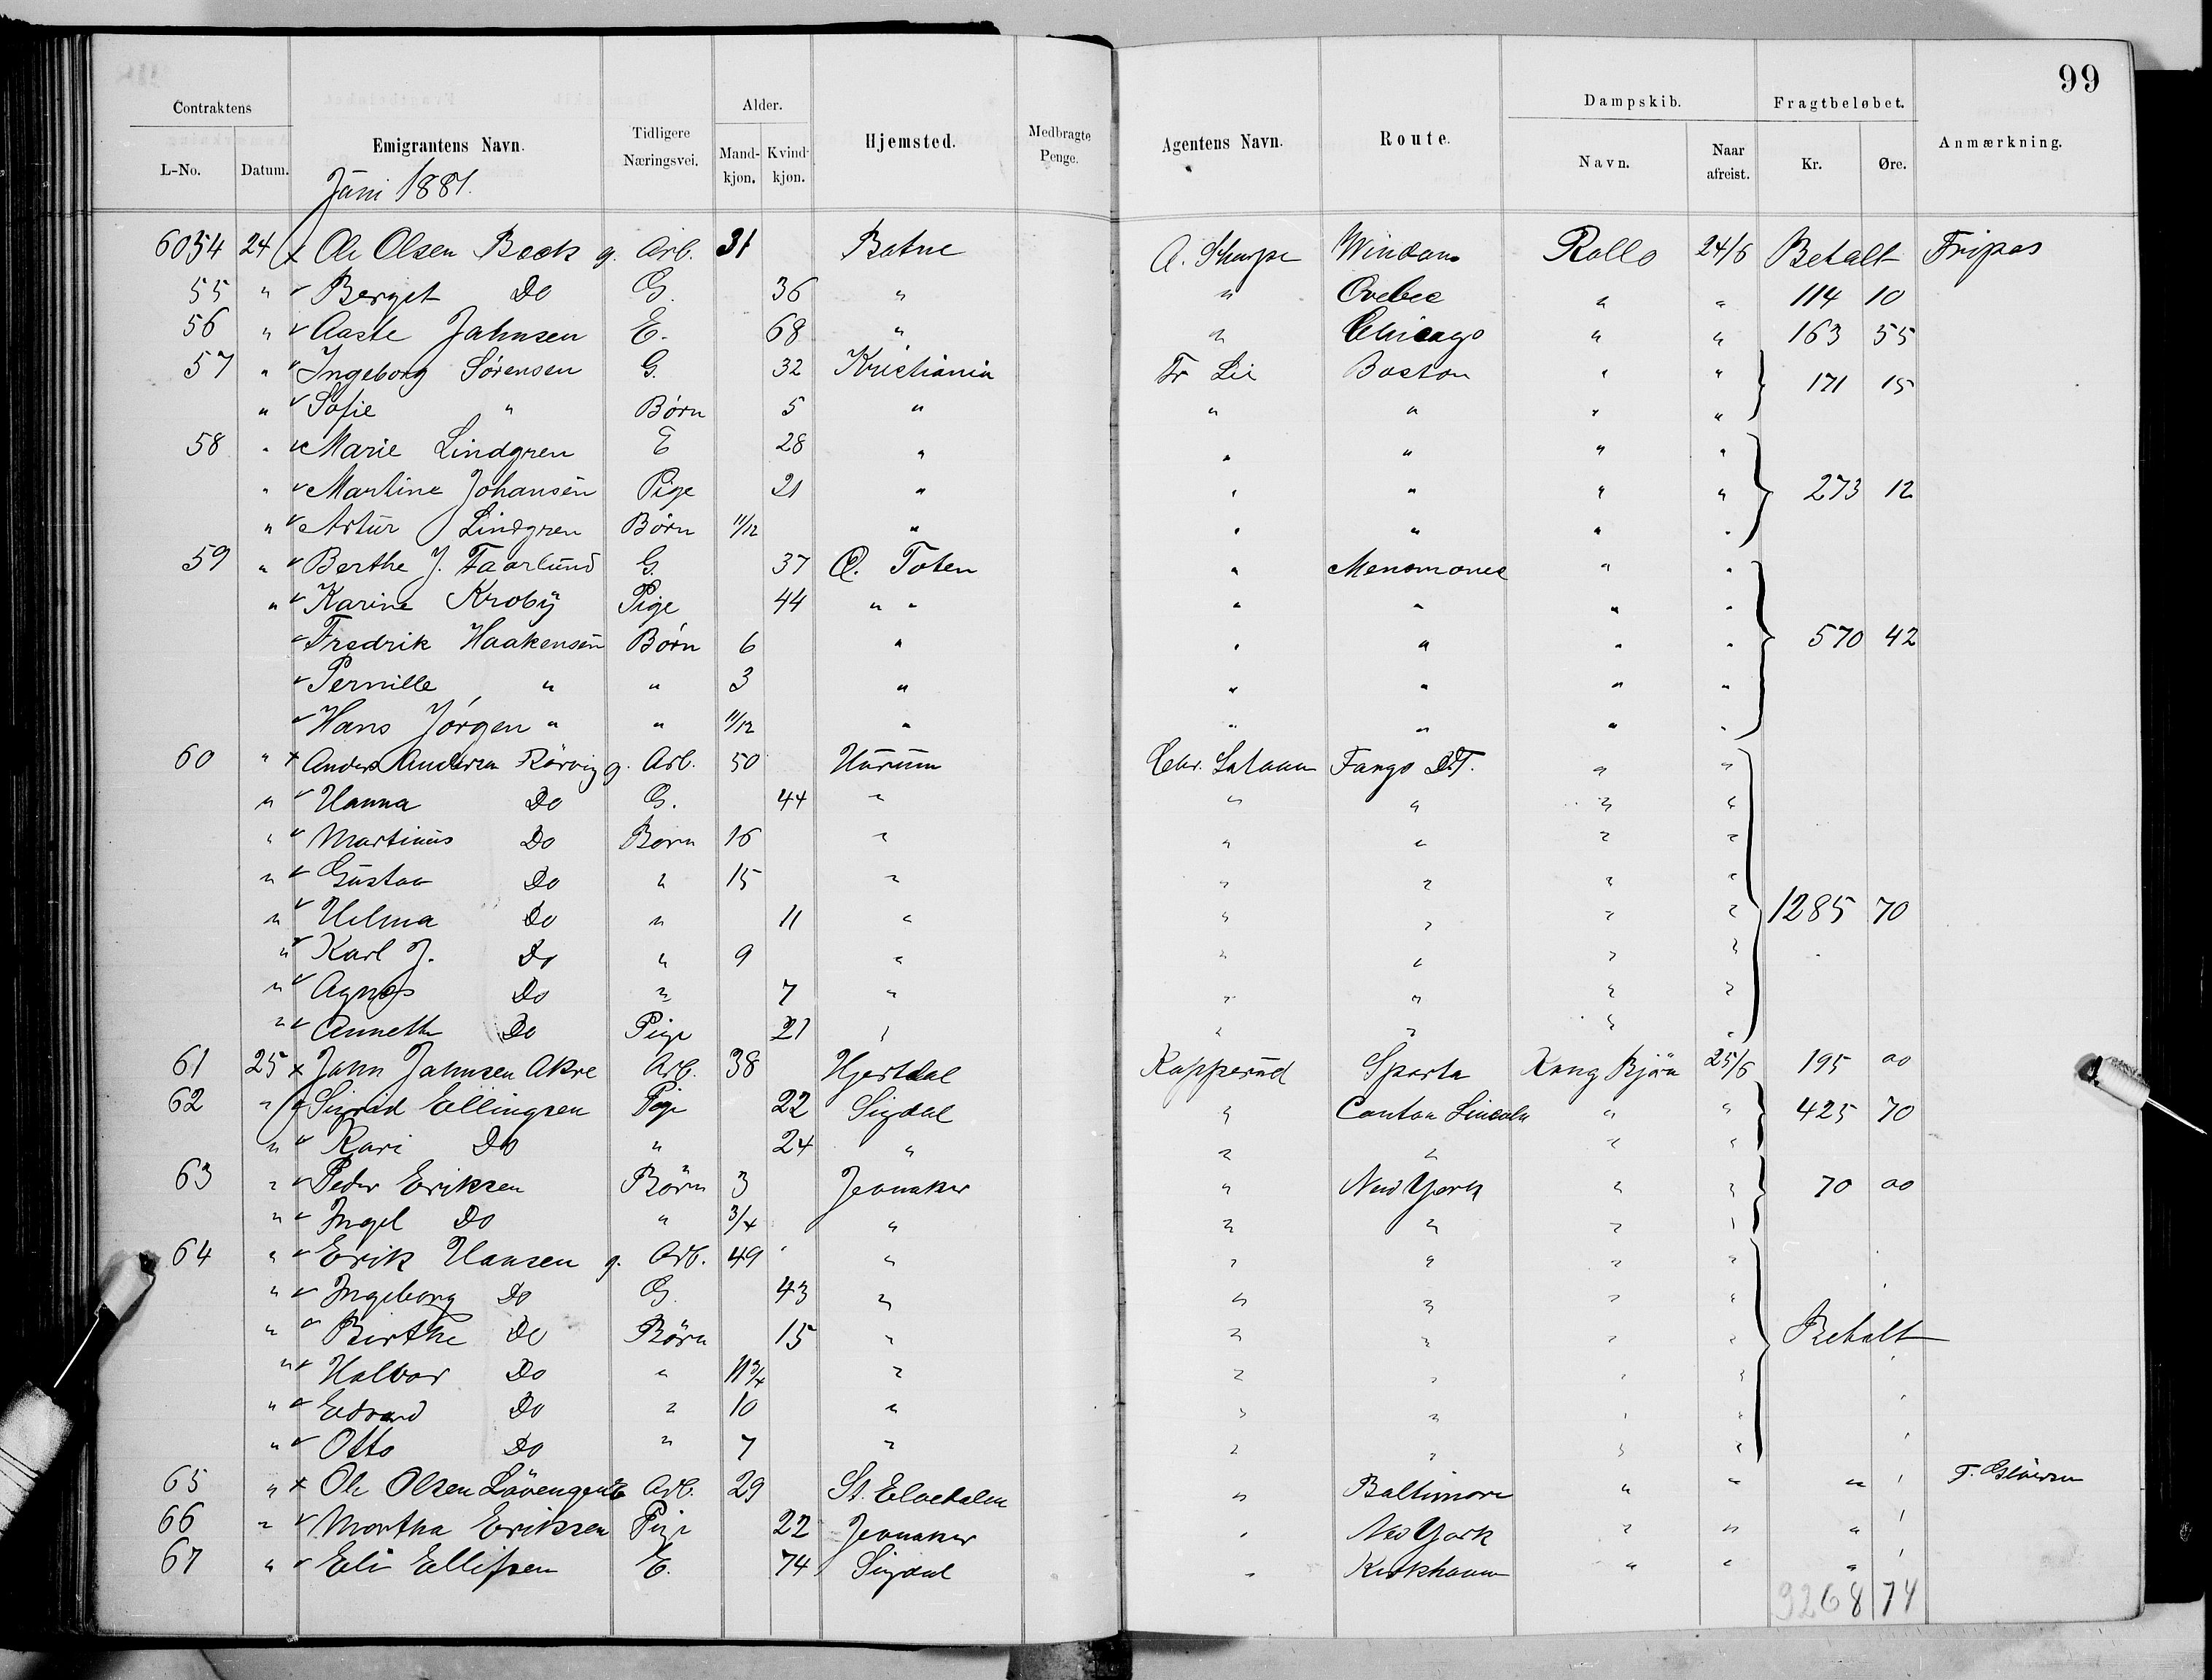 99
Contraktens Emigrantens Navn. Tidligere Næringsvei. Alder. Hjemsted. Medbragte Penge. Agentens Navn. Route. Dampskib. Fragtbeløbet. Anmærkning.
L-No. Datum. Mandkjøn. Kvindkjøn. Navn. Naar afreist. Kr. Øre.
Juni 1881.
6054 24 x Ole Olsen Beck g. Arb. 31 A. Sharpe Windom Rollo 24/6 Betalt Fripas
55 " Berget Do G. 36 " " Qvebec " " 114 10
56 " Aaste Jahnsen E. 68 " " Chicago " " 163 55
57 " Ingeborg Sørensen G. 32 Kristiania Fr Lie Boston " " 171 15
" Sofie " Børn 5 " " " " "
58 " Marie Lindgren E 28 " " " " "
" Martine Johansen Pige 21 " " " " " 273 12
" Artur Lindgren Børn 11/12 " " " " "
59 " Berthe J. Faarlund G. 37 Ø. Toten " Menomonee " "
" Karine Kroby Pige 44 " " " " " "
Fredrik Haakensen Børn 6 " " " " " 570 42
Pernille " " 3 " " " " "
Hans Jörgen " " 11/12 " " " " "
60 " x Anders Andersen Rörvig g. Arb. 50 Hurum Chr. Fargo D.T. " "
" Hanna Do G. 44 " " " " "
" Martinus Do Børn 16 " " " " "
" Gustav Do " 15 " " " " "
" Helma Do " 11 " " " " " 1285 70
" Karl J. Do " 9 " " " " "
" Agnes Do " 7 " " " " "
" Annette Do Pige 21 " " " " "
61 25 x Jahn Jahnsen Akre Arb. 38 Hjertdal Kapperud Sparta Kong Bjørn 25/6 195 00
62 " Sigrid Ellingsen Pige 22 Sigdal " Canton Lincoln " " 425 70
" Kari Do " 24 " " " " "
63 " Peder Eriksen Børn 3 Jevnaker " New York " " 70 00
" Ingel Do " 3/4 " " " " "
64 " Erik Hansen g. Arb. 49 " " " " "
" Ingeborg Do G. 43 " " " " "
" Birthe Do Børn 15 " " " " " Betalt
" Halvor Do " 11 3/4 " " " " "
" Edvard Do " 10 " " " " "
" Otto Do " 7 " " " " "
65 " x Ole Olsen Arb. 29 St. Elvedalen " Baltimore " " "
66 " Martha Eriksen Pige 22 Jevnaker " New York " " "
67 " Eli Ellifsen E. 74 Sigdal " " " "
9268 74